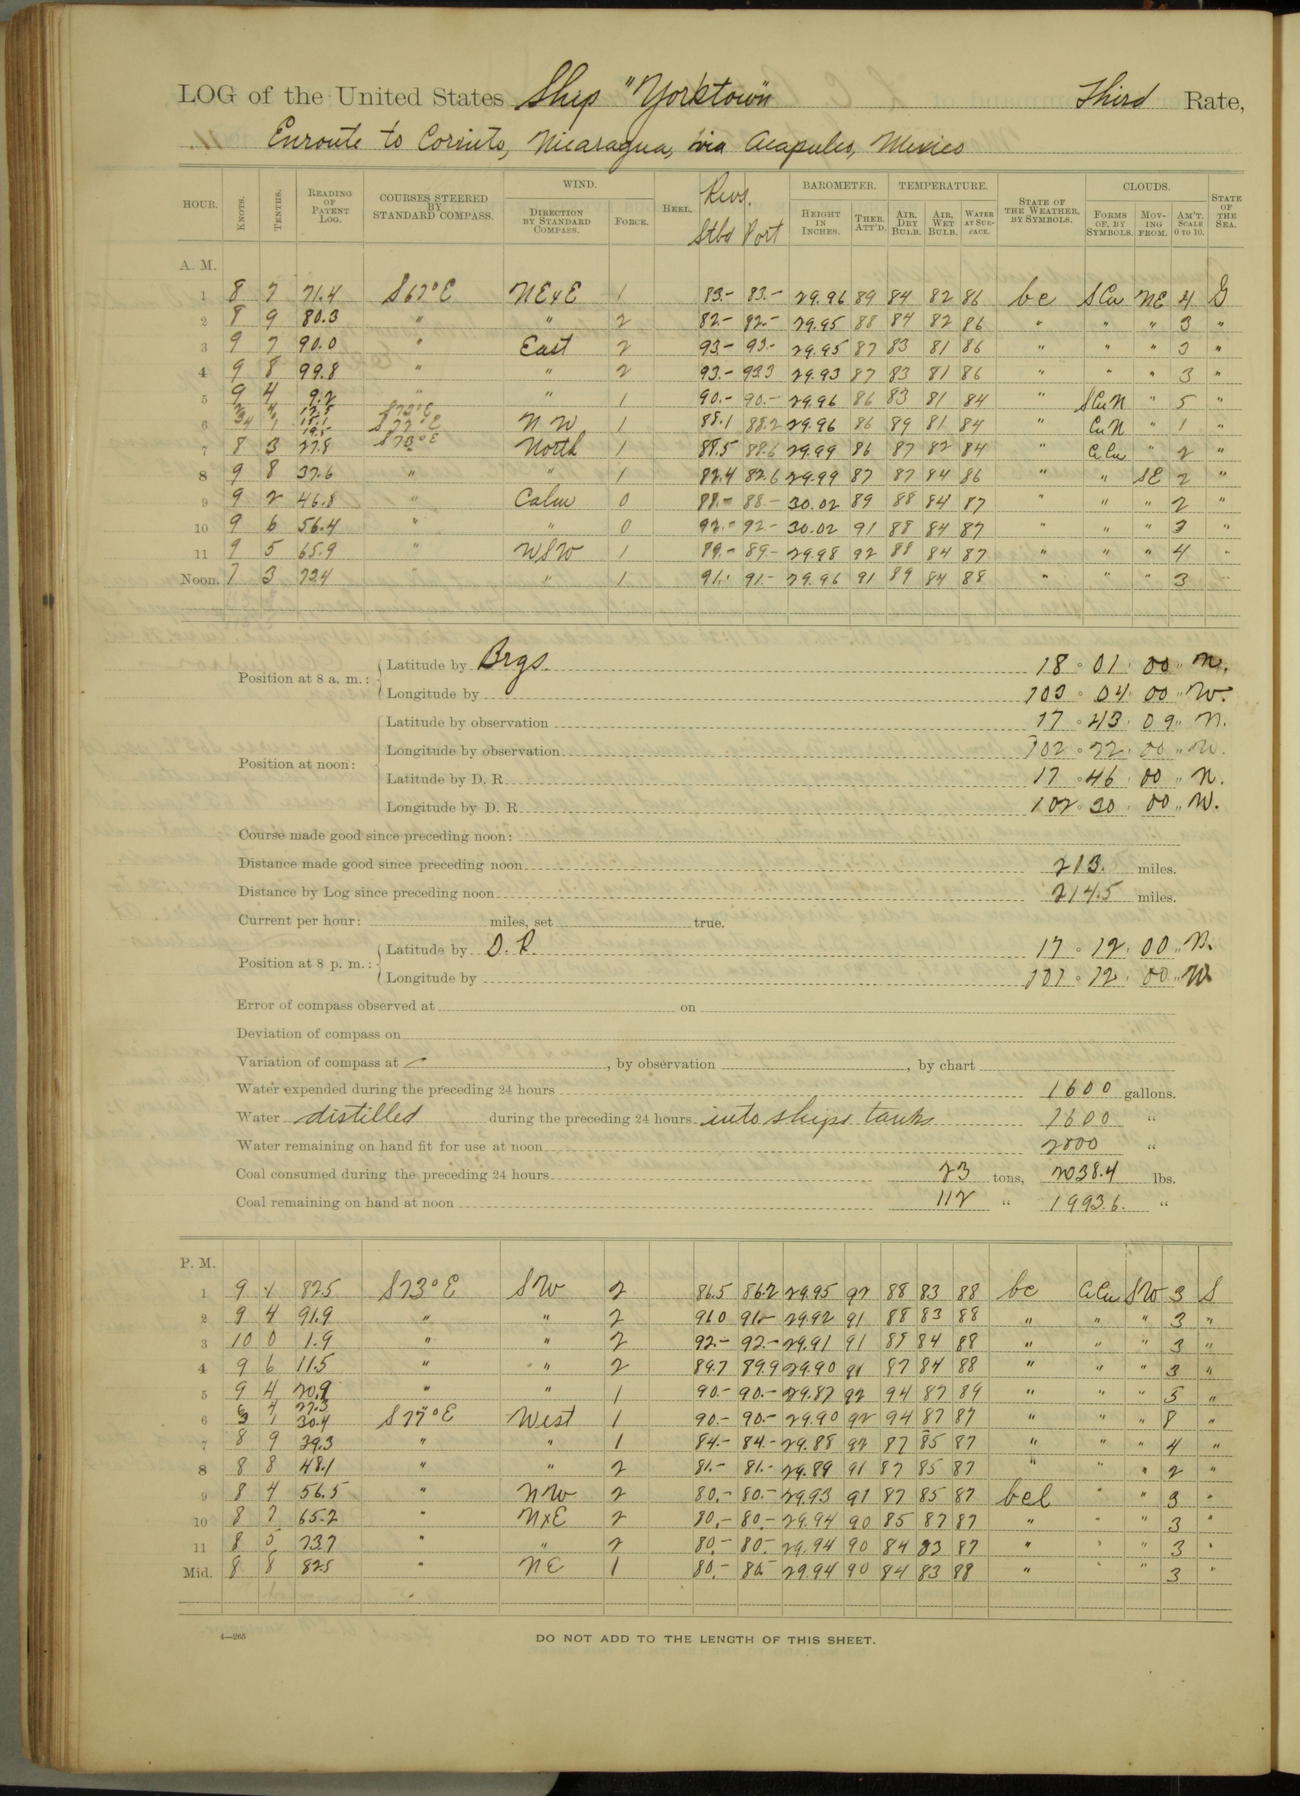 LOG of the United States Ship "Yorktown" Third Rate,
Enroute to Corinto, Nicaragua, via Acapulco, Mexico
HOUR. KNOTS. TENTHS. READING OF PATENT LOG. COURSES STEERED BY STANDARD COMPASS. WIND. DIRECTION BY STANDARD COMPASS. FORCE. HEEL. Revs. Stbd Port BAROMETER. HEIGHT IN INCHES. THER. ATT'D. TEMPERATURE. AIR, DRY BULB. AIR, WET BULB. WATER AT SURFACE. STATE OF THE WEATHER, BY SYMBOLS. CLOUDS. FORMS OF, BY SYMBOLS. MOVING FROM. AM'T. SCALE 0 TO 10. STATE OF THE SEA.
A. M.
1 8 7 71.4 S 67° E NExE 1 83.- 83.- 29.96 89 84 82 86 bc SCu NE 4 G
2 8 9 80.3 " " 2 82- 82.- 29.95 88 84 82 86 " " " 3 "
3 9 7 90.0 " East 2 93- 93.- 29.95 87 83 81 86 " " " 3 "
4 9 8 99.8 " " 2 93.- 93.3 29.93 87 83 81 86 " " " 3 "
5 9 4 9.2 " " 1 90.- 90.- 29.96 86 83 81 84 " SCuN " 5 "
6 S 73° E S 77° E NW 1 88.1 88.2 29.96 86 89 81 84 " CuN " 1 "
7 8 3 27.8 S 73° E North 1 88.5 88.6 29.99 86 87 82 84 " CiCu " 2 "
8 9 8 37.6 " " 1 82.4 82.6 29.99 87 87 84 86 " " SE 2 "
9 9 2 46.8 " Calm 0 88.- 88.- 30.02 89 88 84 87 " " " 2 "
10 9 6 56.4 " " 0 92.- 92- 30.02 91 88 84 87 " " " 3 "
11 9 5 65.9 " WSW 1 89.- 89.- 29.98 92 88 84 87 " " " 4 "
Noon. 7 3 73.4 " " 1 91.- 91.- 29.96 91 89 84 88 " " " 3 "
Position at 8 a. m.: Latitude by Brgs. 18 ° 01 ' 00 " N.
Longitude by 103 ° 04 ' 00 " W.
Position at noon: Latitude by observation 17 ° 43 ' 09 " N.
Longitude by observation 102 ° 22 ' 00 " W.
Latitude by D. R. 17 ° 46 ' 00 " N.
Longitude by D. R. 102 ° 30 ' 00 " W.
Course made good since preceding noon:
Distance made good since preceding noon 213. miles.
Distance by Log since preceding noon 214.5 miles.
Current per hour: miles, set true.
Position at 8 p. m.: Latitude by D. R. 17 ° 12 ' 00 " N.
Longitude by 101 ° 12 ' 00 " W.
Error of compass observed at on
Deviation of compass on
Variation of compass at , by observation , by chart
Water expended during the preceding 24 hours 1600 gallons.
Water distilled during the preceding 24 hours into ships tanks 1600 "
Water remaining on hand fit for use at noon 2800 "
Coal consumed during the preceding 24 hours 23 tons, 2038.4 lbs.
Coal remaining on hand at noon 112 " 1993.6. "
P. M.
1 9 1 82.5 S 73° E SW 2 86.5 86.2 29.95 92 88 83 88 bc CiCu SW 3 S
2 9 4 91.9 " " 2 91.0 91.- 29.92 91 88 83 88 " " " 3 "
3 10 0 1.9 " " 2 92.- 92.- 29.91 91 88 84 88 " " " 3 "
4 9 6 11.5 " " 2 89.7 89.9 29.90 91 87 84 88 " " " 3 "
5 9 4 20.9 " " 1 90.- 90.- 29.87 92 94 87 89 " " " 5 "
6 6 4 27.3 3 1 30.4 S 77° E West 1 90.- 90.- 29.90 92 94 87 87 " " " 8 "
7 8 9 39.3 " " 1 84.- 84.- 29.88 92 87 85 87 " " " 4 "
8 8 8 48.1 " " 2 81.- 81.- 29.89 91 87 85 87 " " " 2 "
9 8 4 56.5 " NW 2 80.- 80.- 29.93 91 87 85 87 bcl " " 3 "
10 8 7 65.2 " NxE 2 80.- 80.- 29.94 90 85 87 87 " " " 3 "
11 8 5 73.7 " " 2 80.- 80.- 29.94 90 84 83 87 " " " 3 "
Mid. 8 8 82.5 " NE 1 80.- 80.- 29.94 90 84 83 88 " " " 3 "
4—265
DO NOT ADD TO THE LENGTH OF THIS SHEET.